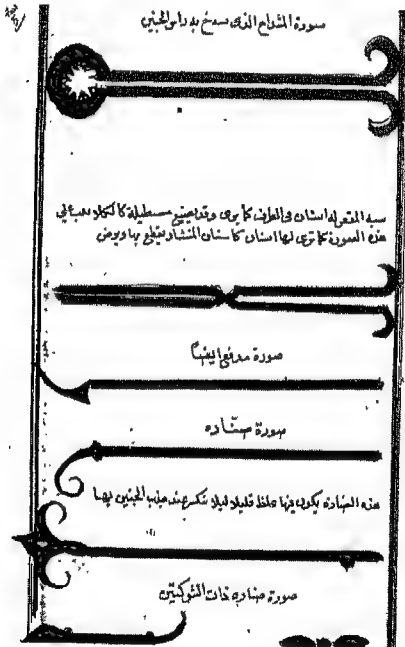 صورة المشداخ الذى يشدخ به راس الجنين
شبه المقص له اسنان فى الطرف كما ترى وقد يصنع مستطيلا كالكلاليب على
هذه الصورة كما ترى لها اسنان كاسنان المنشار يقطع بها ويرض
صورة مدفع ايضا
صورة صنّاره
هذه الصناره يكون فيها غلظ قليلا ليلا تنكسر عند جذب الجنين بها
صورة صناره ذات الشوكتين